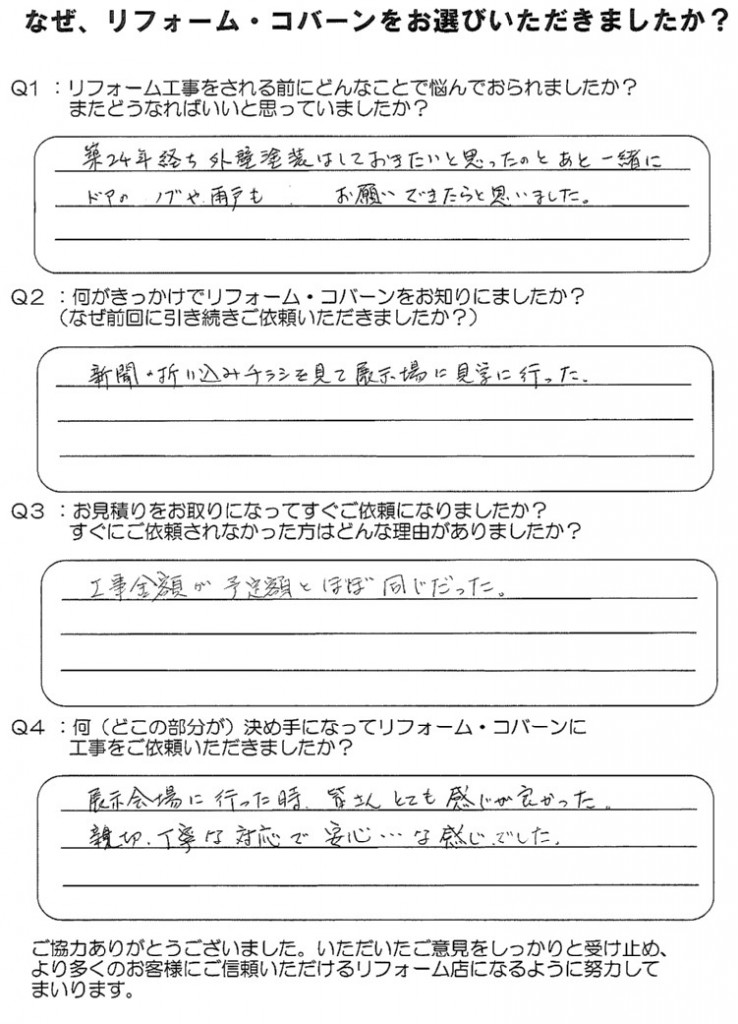 なぜ、リフォーム・コバーンをお選びいただきましたか？
Q1 ：リフォーム工事をされる前にどんなことで悩んでおられましたか？
またどうなればいいと思っていましたか？
築24年経ち 外壁塗装はしておきたいと思ったのと あと一緒に
ドアの ノブや雨戸も お願いできたらと思いました。
Q2 ：何がきっかけでリフォーム・コバーンをお知りにましたか？
（なぜ前回に引き続きご依頼いただきましたか？）
新聞・折り込みチラシを見て展示場に見学に行った。
Q3 ：お見積りをお取りになってすぐご依頼になりましたか？
すぐにご依頼されなかった方はどんな理由がありましたか？
工事金額が予定額とほぼ同じだった。
Q4 ：何（どこの部分が）決め手になってリフォーム・コバーンに
工事をご依頼いただきましたか？
展示会場に行った時、皆さんとても感じが良かった。
親切、丁寧な対応で安心…な感じでした。
ご協力ありがとうございました。いただいたご意見をしっかりと受け止め、
より多くのお客様にご信頼いただけるリフォーム店になるように努力して
まいります。